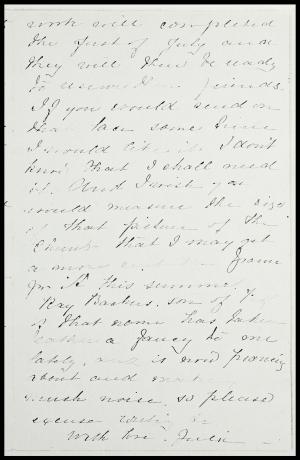 work will completed
the first of July and
they will then be ready
to friends.
If you would send on
that lace some time
I would like it. I don't
know that I shall need
it. And I wish you
would measure the size
of that picture of the
that I may get
a more frame
for it this summer.
Ray Barbus, son of
of that name has taken
a fancy to me
lately, and is now prancing
about and making
much noise, so please
excuse writing
With love, Julia